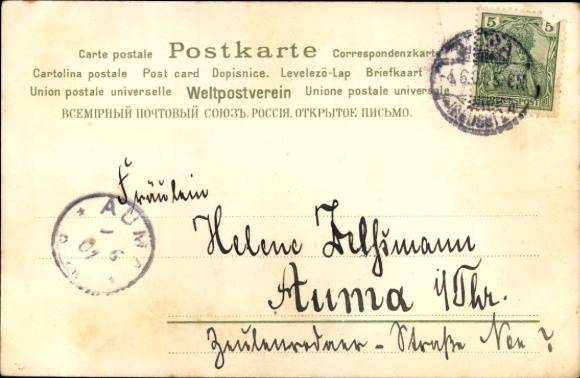 Carte postale Postkarte Correspondenzkarte
Cartolina postale Post card Dopisnice. Levelezö-Lap Briefkaart
Union postale universelle Weltpostverein Unione postale universale
ВСЕМІРНЫЙ ПОЧТОВЫЙ СОЮЗЪ. РОССІЯ. ОТКРЫТОЕ ПИСЬМО.
5 5
Fräulein
Helene
Auma i/Thr.
Zeulenrodaer-Straße No ?
AUMA